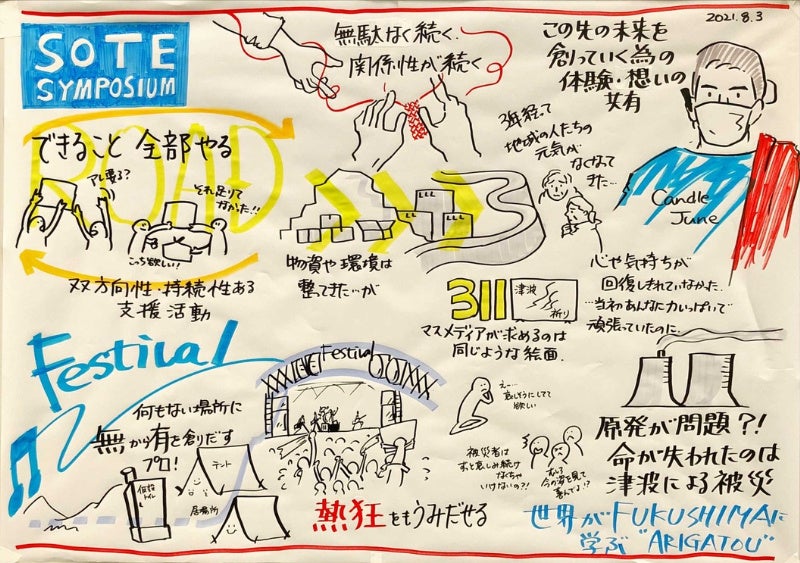 2021.8.3
SOTE
SYMPOSIUM
無駄なく続く、
関係性が続く
この先の未来を
創っていく為の
体験・想いの
共有
Candle
June
ROAD
できること 全部やる
アレ要る?
それ足りて
なかった!!
こっち欲しい!
双方向性・持続性ある
支援活動
物資や環境は
整てきた…が
3年経って
地域の人たちの
元気が
なくなって
きた…
心や気持ちが
回復しきれていなかった。
…当初あんなに力いっぱいで
頑張っていたのに…
311
津波
祈り
マスメディアが求めるのは
同じような絵画.
Festival
何もない場所に
無から有を創りだす
プロ!
仮設
トイレ
テント
居場所
Festival
熱狂をもうみだせる
え…
悲しそうにしてて
欲しい
被災者は
ずっと悲しみ続け
なくちゃ
いけないの?!
今の姿を見て
原発が問題?!
命が失われたのは
津波による被災
世界がFUKUSHIMAに
学ぶ "ARIGATOU"